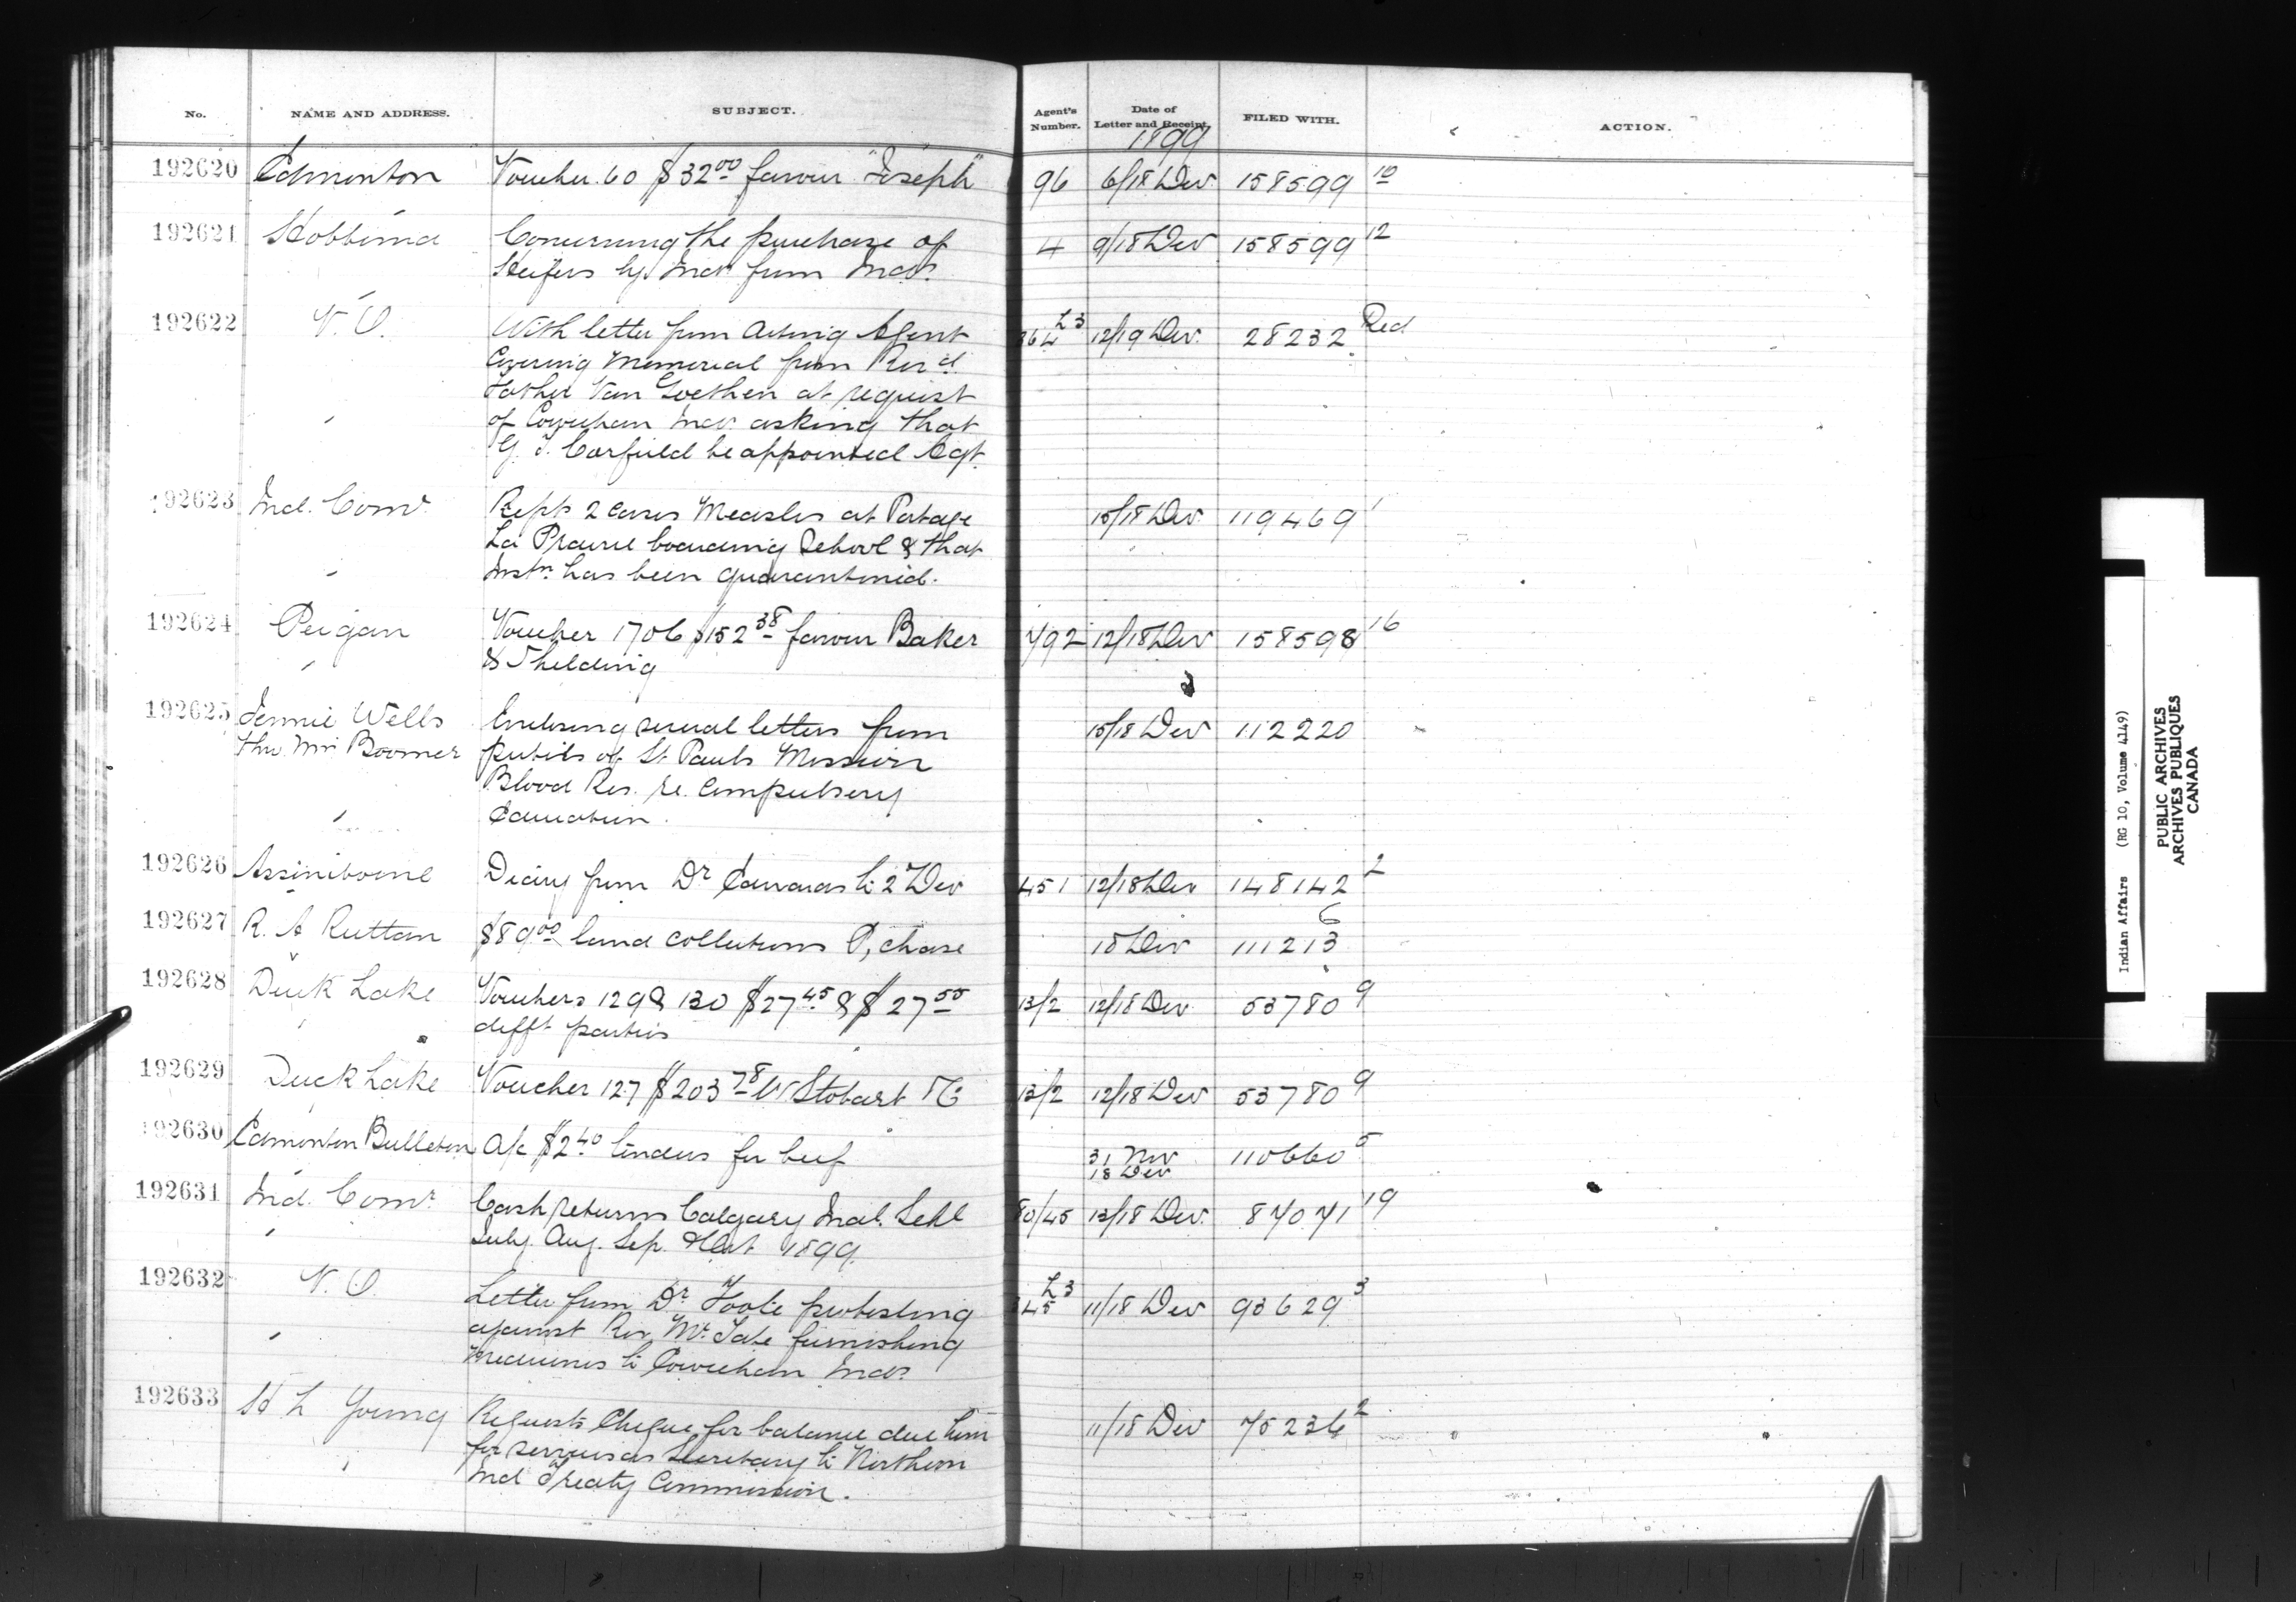 No. NAME AND ADDRESS. SUBJECT. Agent's Number. Date of Letter and Receipt. FILED WITH. ACTION.
1899
192620 Edmonton Voucher 60 $32 00 favour "Joseph" 96 6/18 Dec 158599 10
192621 Hobbema Concerning the purchase of 4 9/18 Dec 158599 12
Heifers by Inds from Inds.
192622 V. O. With letter from Acting Agent 364 L3 12/19 Dec. 28232 Red
Covering Memorial from Rev'd
Father Van Goethen at request
of Cowichan Inds. asking that
G. T. Corfield be appointed Agt.
192623 Ind. Comr. Repts 2 cases Measles at Portage 15/18 Dec 119469 1
La Prairie boarding School & that
Instn. has been quarantined.
192624 Peigan Voucher 1706 $152 38 favour Baker 792 12/18 Dec 158598 16
192625 Jennie Wells Enclosing several letters from 15/18 Dec 112220
thro Mrs Boomer pupils of St Pauls Mission
Blood Res. re. Compulsory
Education.
192626 Assiniboine Diary from Dr Edwards to 2 Dec 451 12/18 Dec 148142 2
192627 R. A Ruttan $89 00 land collections P, chase 18 Dec 111213 6
192628 Duck Lake Vouchers 129 & 130 $27 45 & $27 55 13/2 12/18 Dec 53780 9
difft parties
192629 Duck Lake Voucher 127 $203 78 W Stobart & Co 13/2 12/18 Dec 53780 9
192630 Edmonton Bulletin A/c $2 40 tenders for beef 31 Nov 110660 5
18 Dec
192631 Ind. Comr. Cash returns Calgary Indl. Schl 80/45 13/18 Dec. 87071 19
July. Aug. Sep. & Oct 1899.
192632 V. O. Letter from Dr Foote protesting 345 L3 11/18 Dec 93629 3
against Rev Mr. Tate furnishing
medicines to Cowichan Inds
192633 H L Young Requests Cheque for balance due him 11/18 Dec 75236 2
for services as Secretary to Northern
Ind Treaty Commission.
Indian Affairs (RG 10, Volume 4149)
PUBLIC ARCHIVES
ARCHIVES PUBLIQUES
CANADA